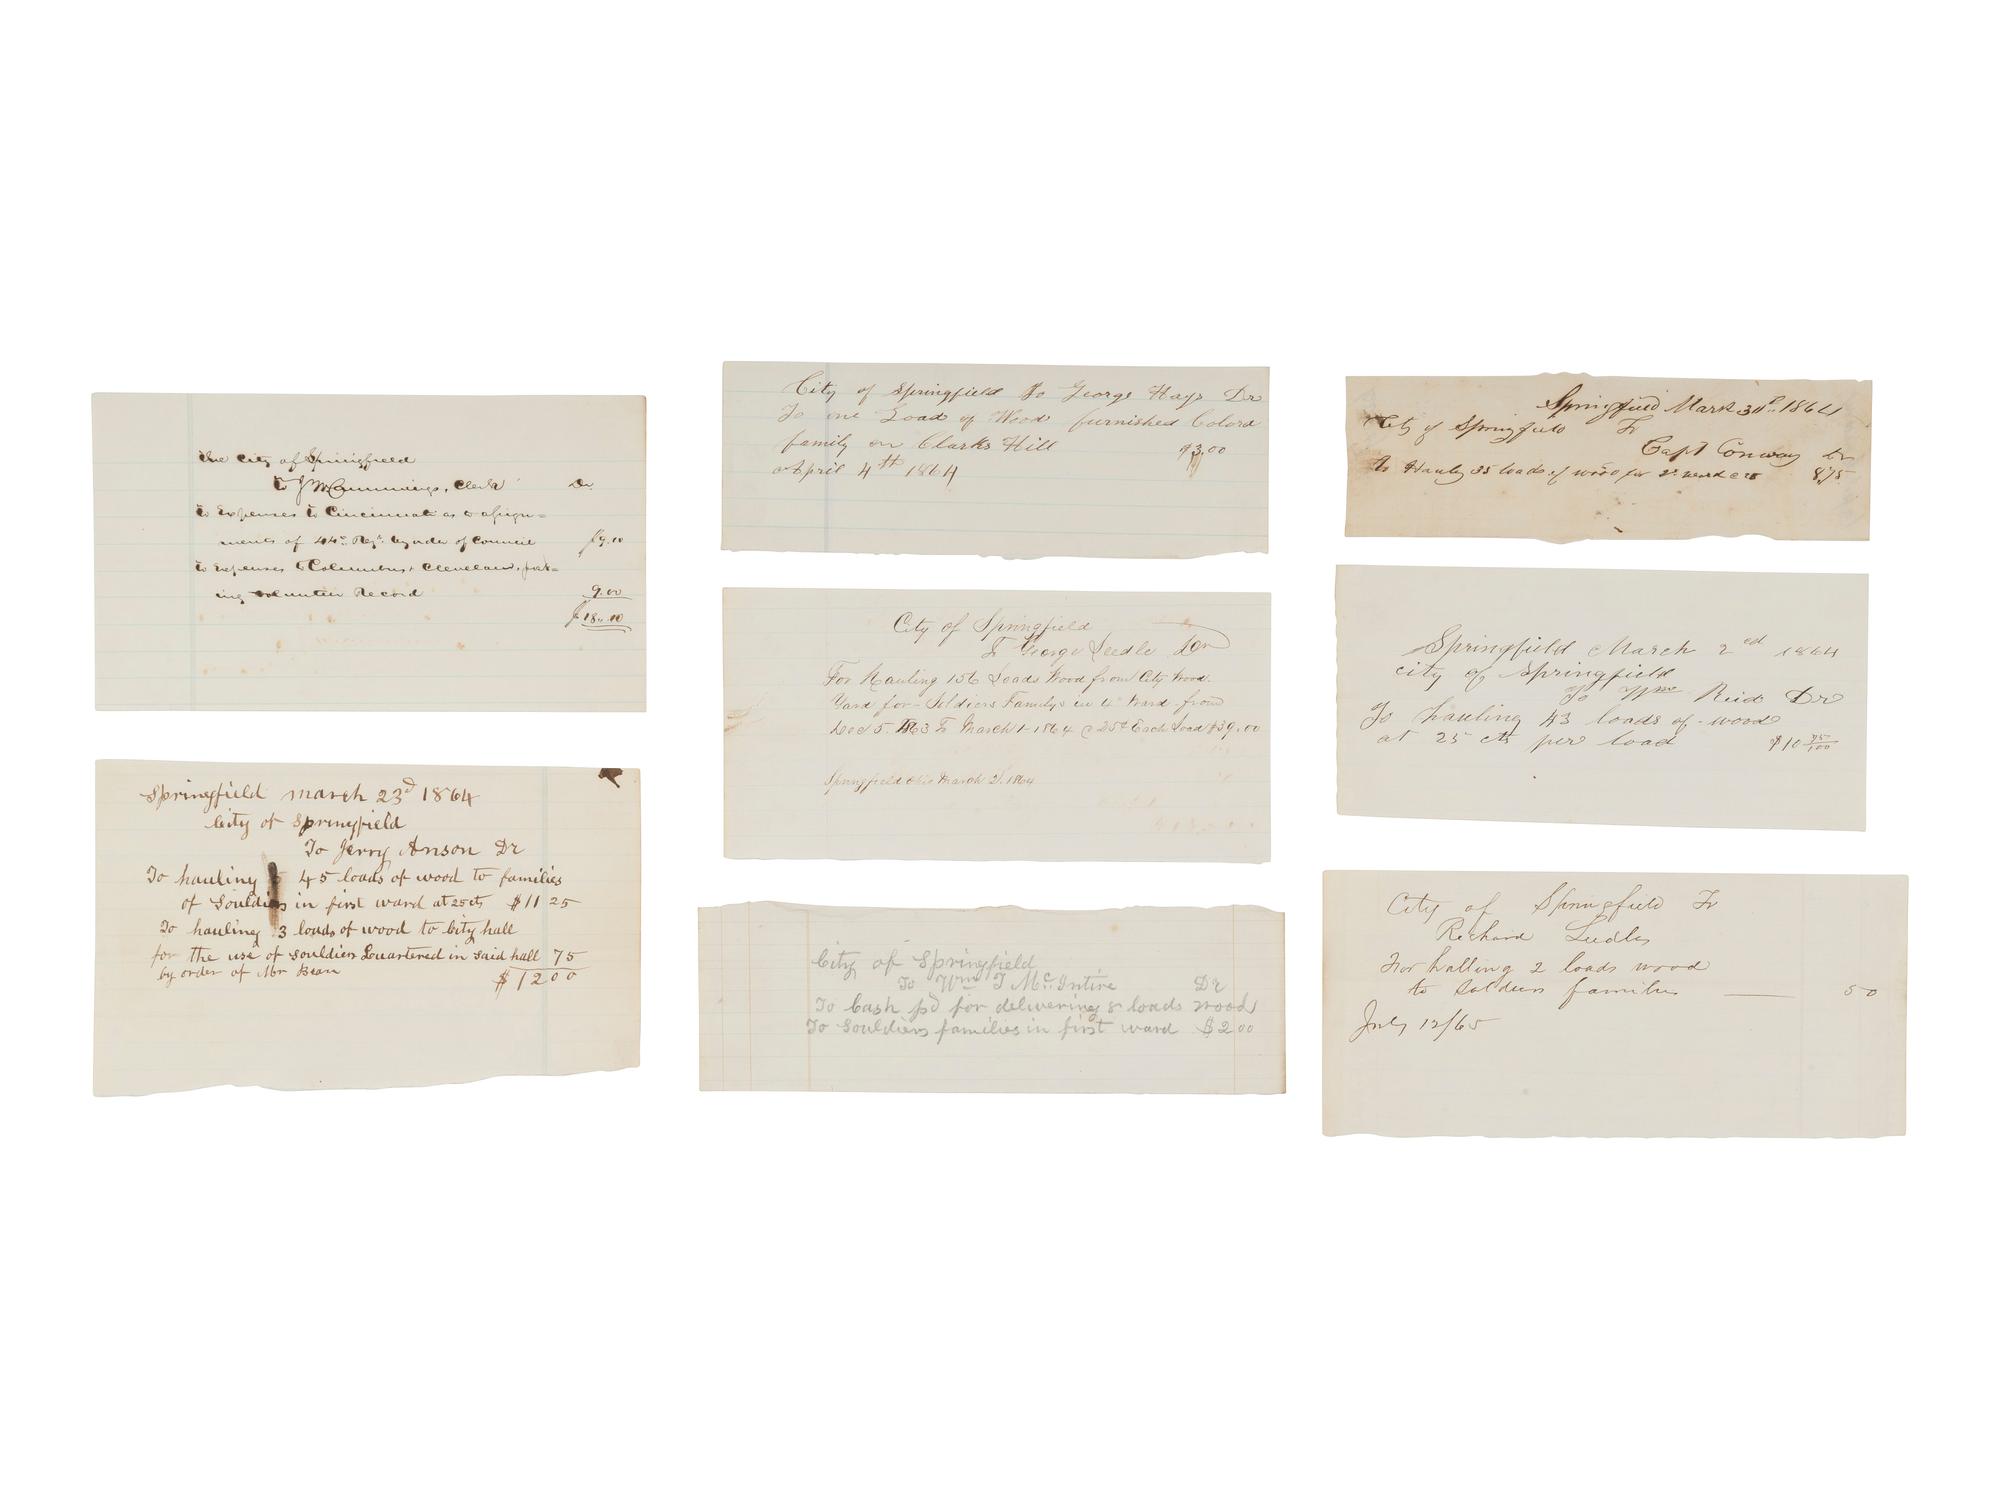 The City of Springfield
To J W Cummings, Clerk Dr.
To Expenses to Cincinnati as to
ments of 44th Regt. by order of Council $9.00
To Expenses to Columbus & Cleveland,
ing volunteer Record 9.00
$18.00
Springfield march 23d 1864
City of Springfield
To Jerry Anson Dr
To hauling 45 loads of wood to families
of Souldiers in first ward at 25 cts $11 25
To hauling 3 loads of wood to City hall
for the use of souldiers Quartered in said hall 75
by order of Mr Bean $12 00
City of Springfield To George Hays Dr
To one Load of Wood furnished Colord
family on Clarks Hill $3.00
April 4th 1864
City of Springfield
To George Seedle Dr
For Hauling 156 Loads Wood from City Wood.
Yard for Soldiers Familys in 4th Ward from
Dec 5. 1863 To March 1 - 1864 @ 25c Each Load $39.00
Springfield Ohio March 2. 1864
City of Springfield
To Wm T McIntire Dr
To Cash pd for delivering 8 loads wood
To Souldiers families in first ward $2 00
Springfield March 1864
City of Springfield To
Capt Conway Dr
To Hauling 35 loads of wood for 2d ward 8.75
Springfield March 2ed 1864
city of Springfield
To Wm Reid Dr
To hauling 43 loads of wood
at 25 cts per load $10 75/100
City of Springfield To
Richard Ludlow
For halling 2 loads wood
to Soldiers families — 50
July 12/65